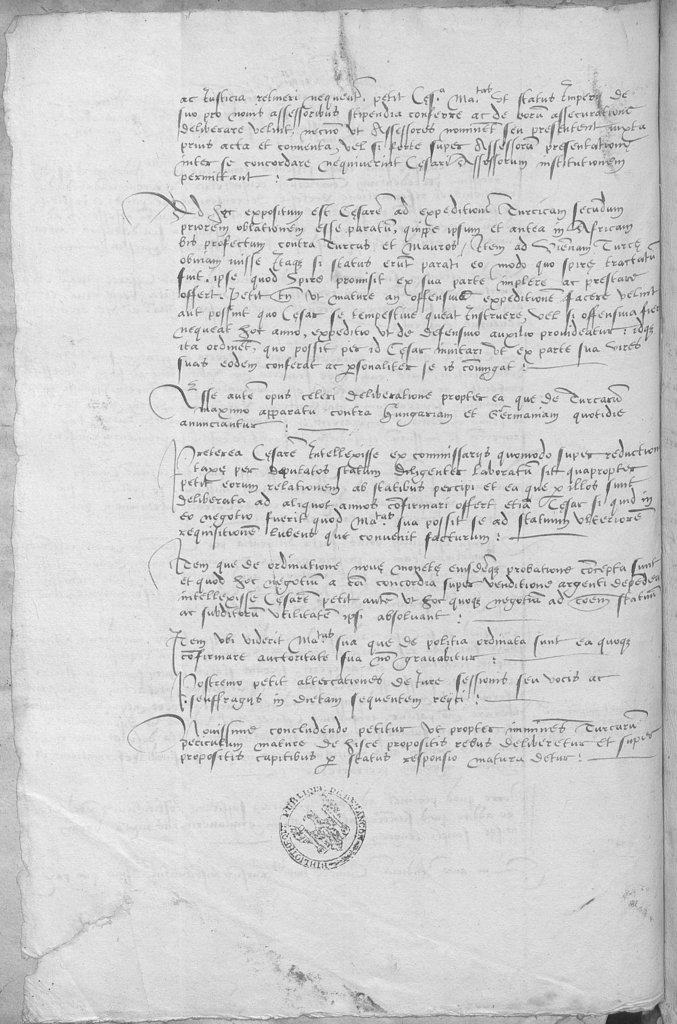 ac Justicia retineri nequeat. petit Cęs.a Ma.tas Vt status Imperij de
suo pro nouis assessoribus stipendia conferre ac de eorum assecuratione
deliberare velint, necnō vt Assessores nominēt seu presentent iuxta
prius acta et conuenta, Vel si forte super Assessorum presentationi
inter se concordare nequiuerint Cęsari Assessorum institutionem
permittant :
Ad hęc expositum est Cęsarē ad expeditionē Turcicam secundum
priorem oblationem esse paratū, quippe ipsum et antea in Africam
bis profectum contra Turcas et Mauros, Item ad Viennam Turcę
obuiam iuisse Itaqȝ si status erunt parati eo modo quo spirę tractatū
fuit, ipse quod Spirę promisit ex sua parte implere ac prestare
offert. Petit vt mature an offensiuē expeditionē facere velint
aut possint quo Cęsar se tempestiue queat Instruere, Vel si offensiua fieri
nequeat hoc anno, expeditio vt de defensiuo auxilio prouideatur : idqȝ
ita ordinēt, quo possit per id Cęsar inuitari vt ex parte sua vires
suas eodem conferat ac psonaliter se is coniūgat :
Esse autē opus celeri deliberatione propter ea que de Turcarū
maximo apparatu contra Hungariam et Germaniam quotidie
anunciantur :
Preterea Cęsarē Intellexisse ex commissarijs quomodo super reduction
taxę per deputatos statuum diligenter laboratū sit quapropter
petit eorum relationem ab statibus percipi et ea que p illos sunt
deliberata ad aliquot annos cōfirmari offert etiā Cęsar si quid in
eo negotio fuerit quod Ma.tas sua possit se ad statuum vlteriorē
requisitionē lubens que conuenit facturum :
Item que de ordinatione nouę monetę eiusdēqȝ probatione cōcepta sunt
et quod hoc negotiū a concordia super venditione argenti depedea
intellexisse Cęsarē petit autē vt hoc quoqȝ negotiū ad cōem statuū
ac subditorū vtilitatē ipsi absoluant :
Item vbi viderit Ma.tas sua que de politia ordinata sunt ea quoqȝ
cōfirmare auctoritate sua nō grauabitur :
Postremo petit altercationes de Iure sessionis seu vocis ac
suffragijs in dietam sequentem reijci :
Nouissime concludendo petitur vt propter imminēs Turcarū
periculum mature de hisce propositis rebus deliberetur et super
propositis capitibus p status responsio matura detur :